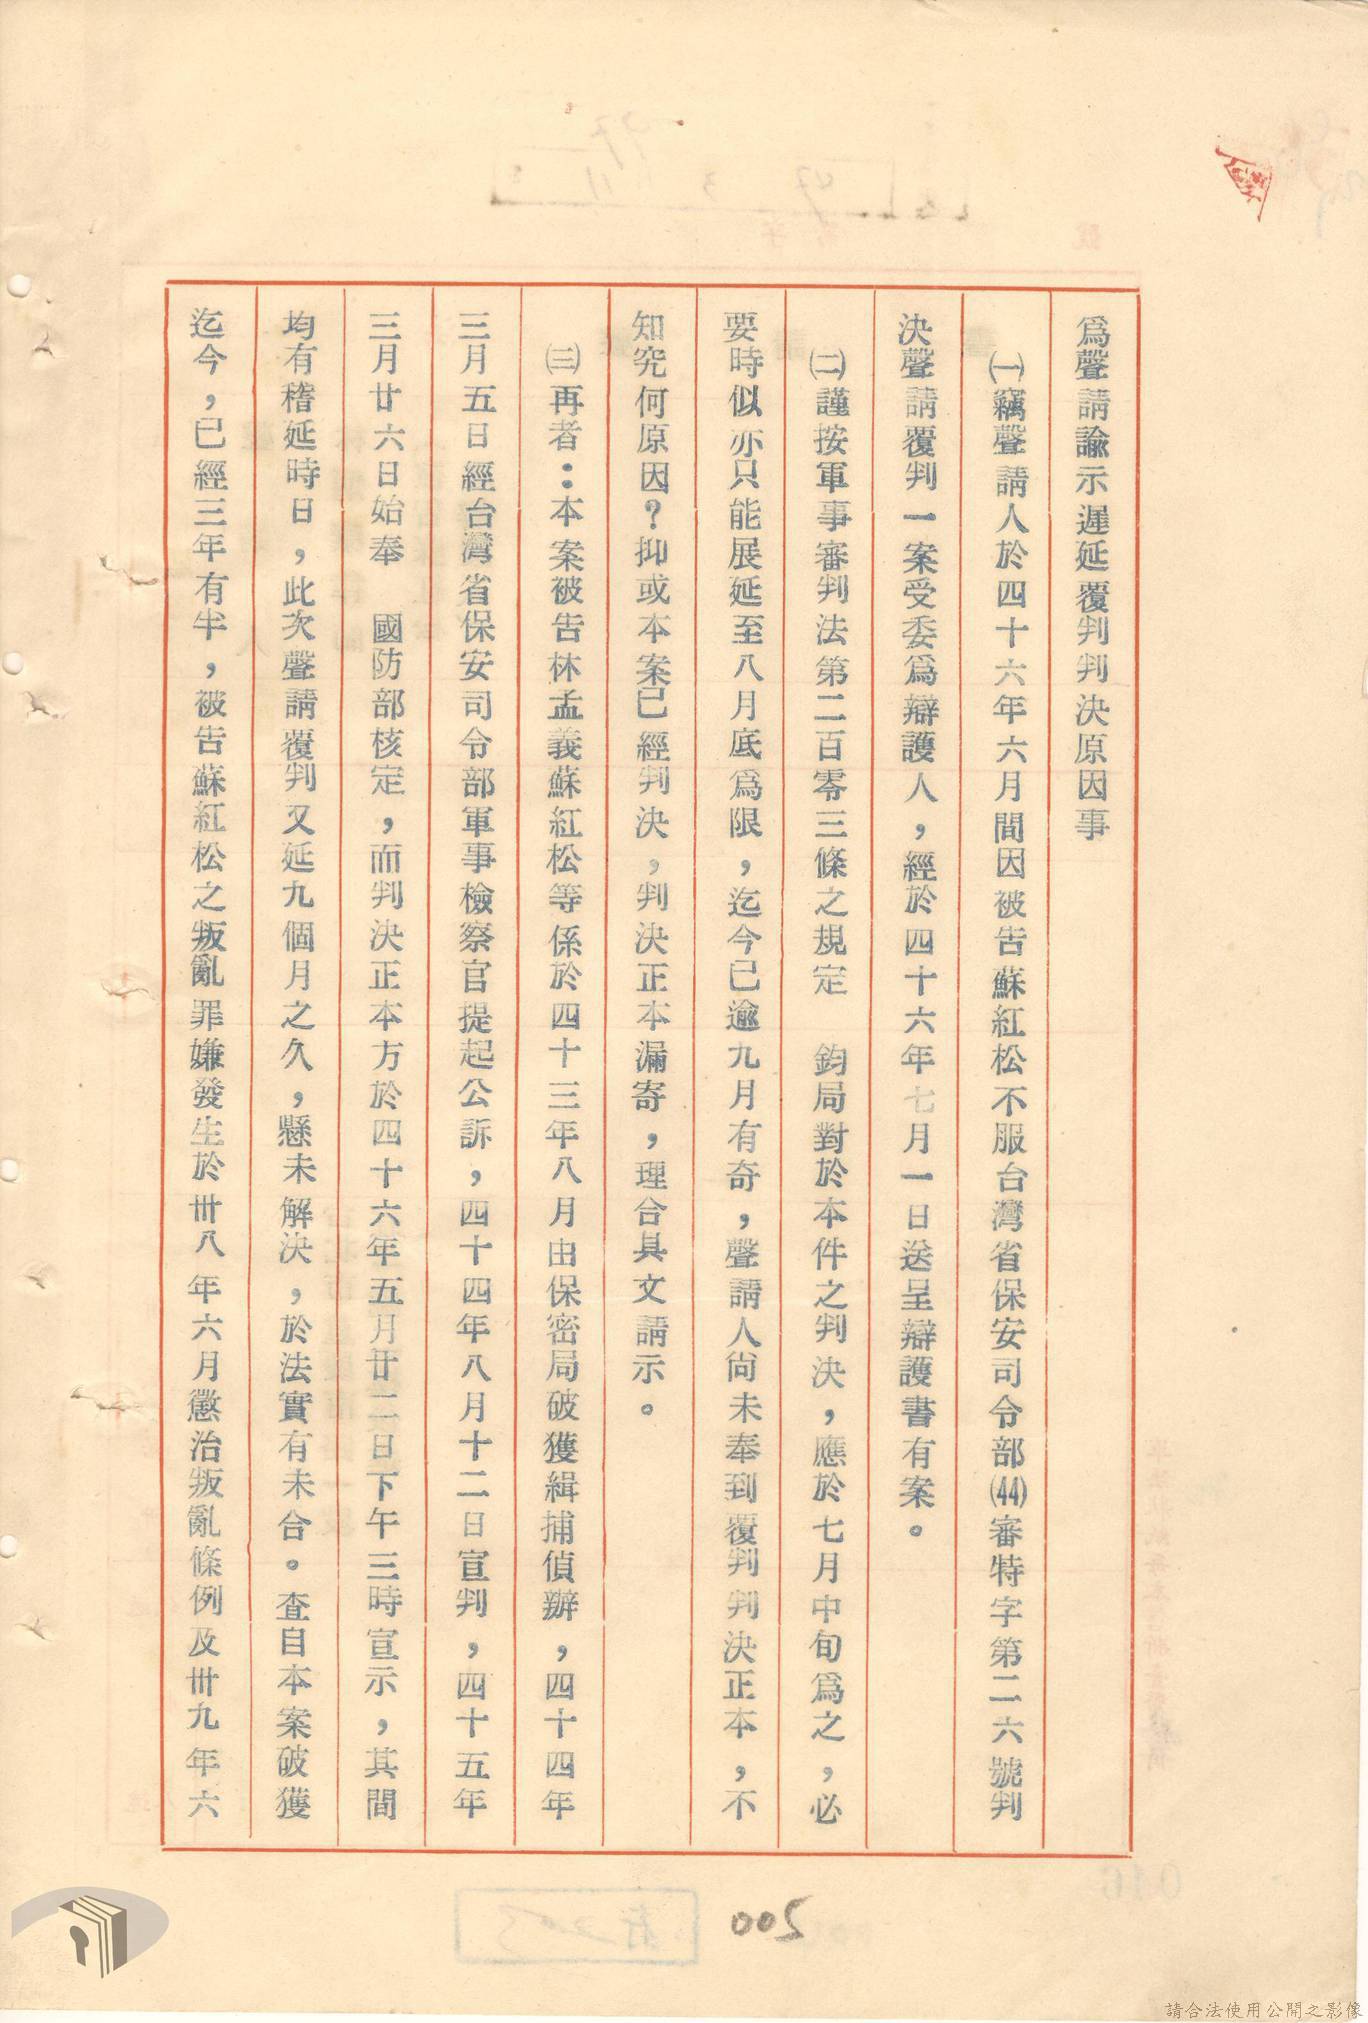 為聲請諭示遲延覆判判決原因事
㈠竊聲請人於四十六年六月間因被告蘇紅松不服台灣省保安司令部(44)審特字第二六號判
決聲請覆判一案受委為辯護人，經於四十六年七月一日送呈辯護書有案。
㈡謹按軍事審判法第二百零三條之規定　鈞局對於本件之判決，應於七月中旬為之，必
要時似亦只能展延至八月底為限，迄今已逾九月有奇，聲請人尚未奉到覆判判決正本，不
知究何原因？抑或本案已經判決，判決正本漏寄，理合具文請示。
㈢再者：本案被告林孟義蘇紅松等係於四十三年八月由保密局破獲緝捕偵辦，四十四年
三月五日經台灣省保安司令部軍事檢察官提起公訴，四十四年八月十二日宣判，四十五年
三月廿六日始奉　國防部核定，而判決正本方於四十六年五月廿二日下午三時宣示，其間
均有稽延時日，此次聲請覆判又延九個月之久，懸未解決，於法實有未合。查自本案破獲
迄今，已經三年有半，被告蘇紅松之叛亂罪嫌發生於卅八年六月懲治叛亂條例及卅九年六
005
請合法使用公開之影像